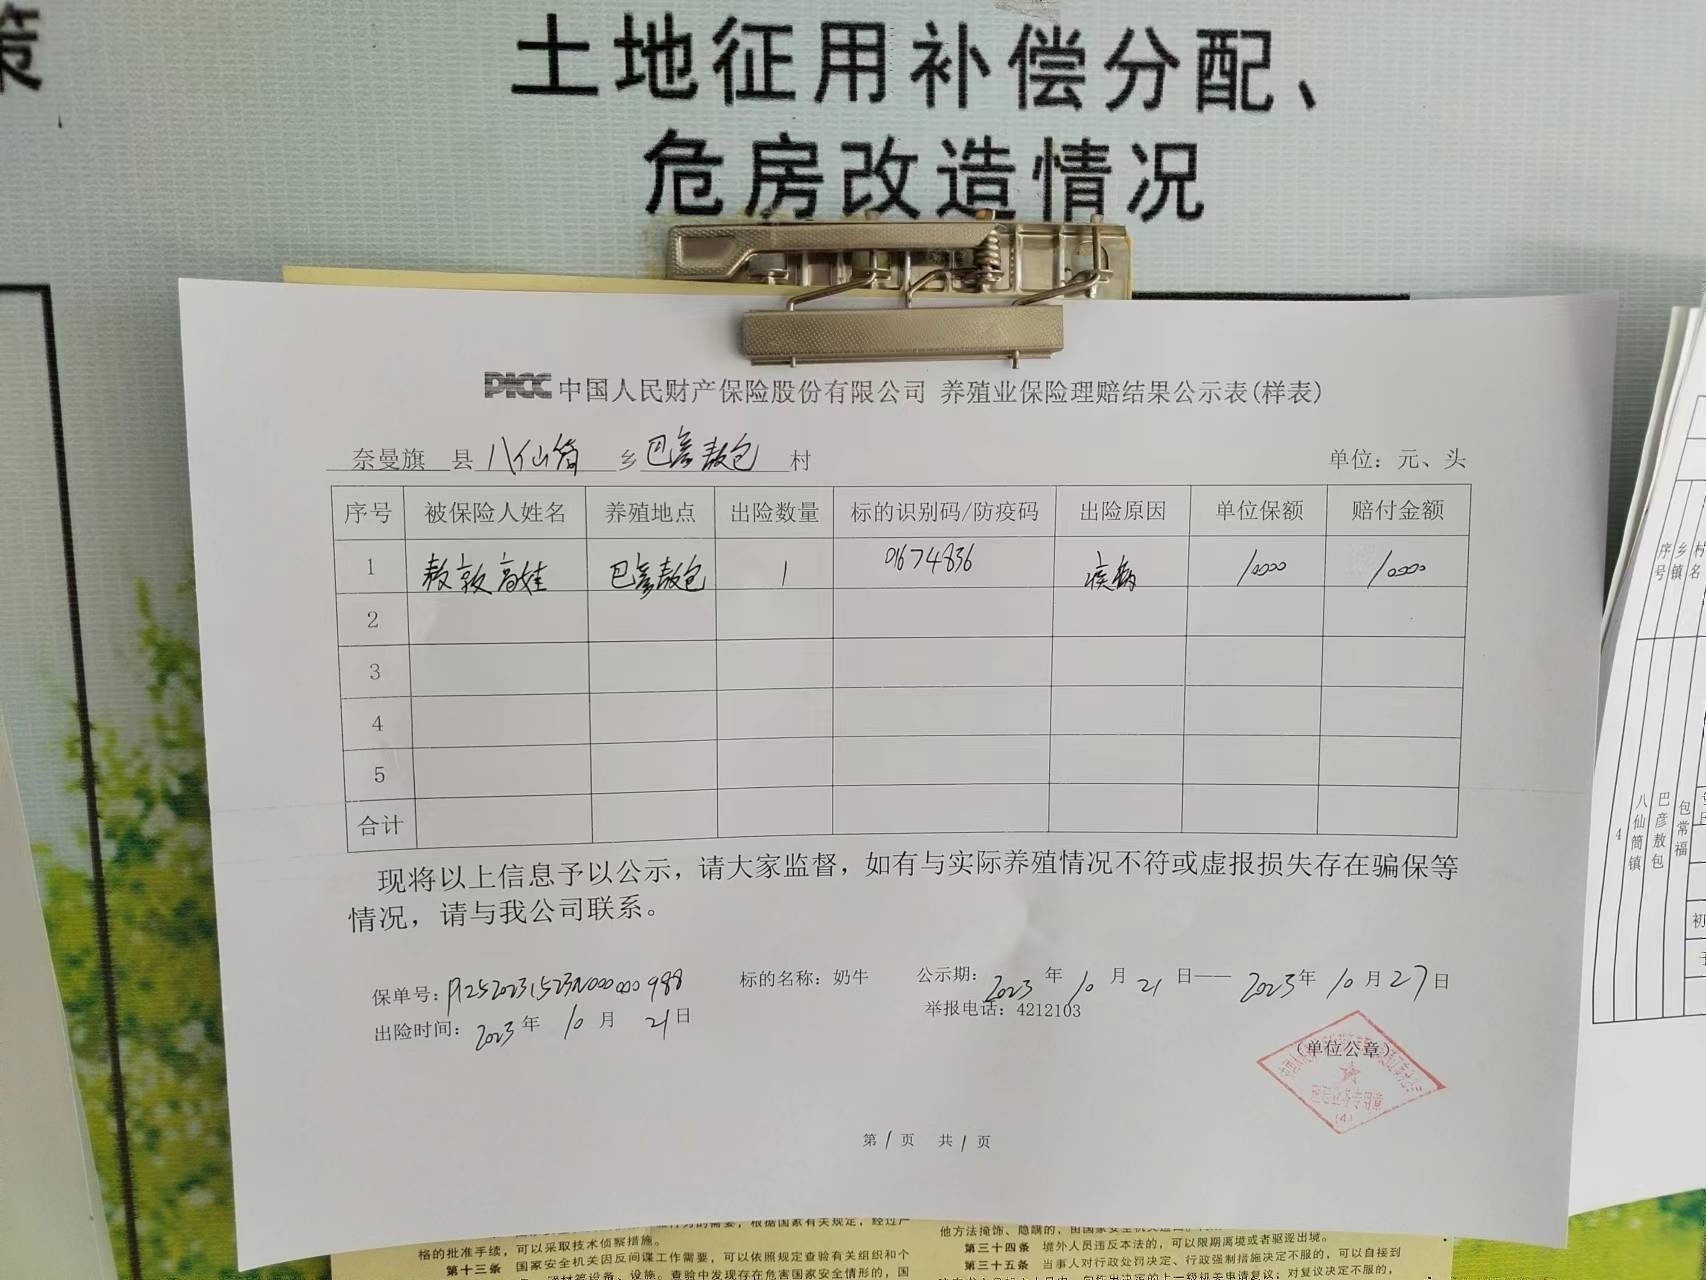 策
土地征用补偿分配、
危房改造情况
PICC 中国人民财产保险股份有限公司 养殖业保险理赔结果公示表(样表)
奈曼旗 县 八仙筒 乡 巴彦敖包 村 单位：元、头
序号 被保险人姓名 养殖地点 出险数量 标的识别码/防疫码 出险原因 单位保额 赔付金额
1 敖敦高娃 巴彦敖包 1 01674836 疾病 10000 10000
2
3
4
5
合计
现将以上信息予以公示，请大家监督，如有与实际养殖情况不符或虚报损失存在骗保等
情况，请与我公司联系。
保单号： 标的名称：奶牛 公示期：2023年10月21日——2023年10月27日
出险时间：2023年10月21日 举报电话：4212103
（单位公章）
(4)
第1页 共1页
序号 乡镇 村名
4 八仙筒镇 巴彦敖包 包常福
初
格的批准手续，可以采取技术侦察措施。
第十三条 国家安全机关因反间谍工作需要，可以依照规定查验有关组织和个
他方法掩饰、隐瞒的，由国家安全机关
第三十四条 境外人员违反本法的，可以限期离境或者驱逐出境。
第三十五条 当事人对行政处罚决定、行政强制措施决定不服的，可以自接到